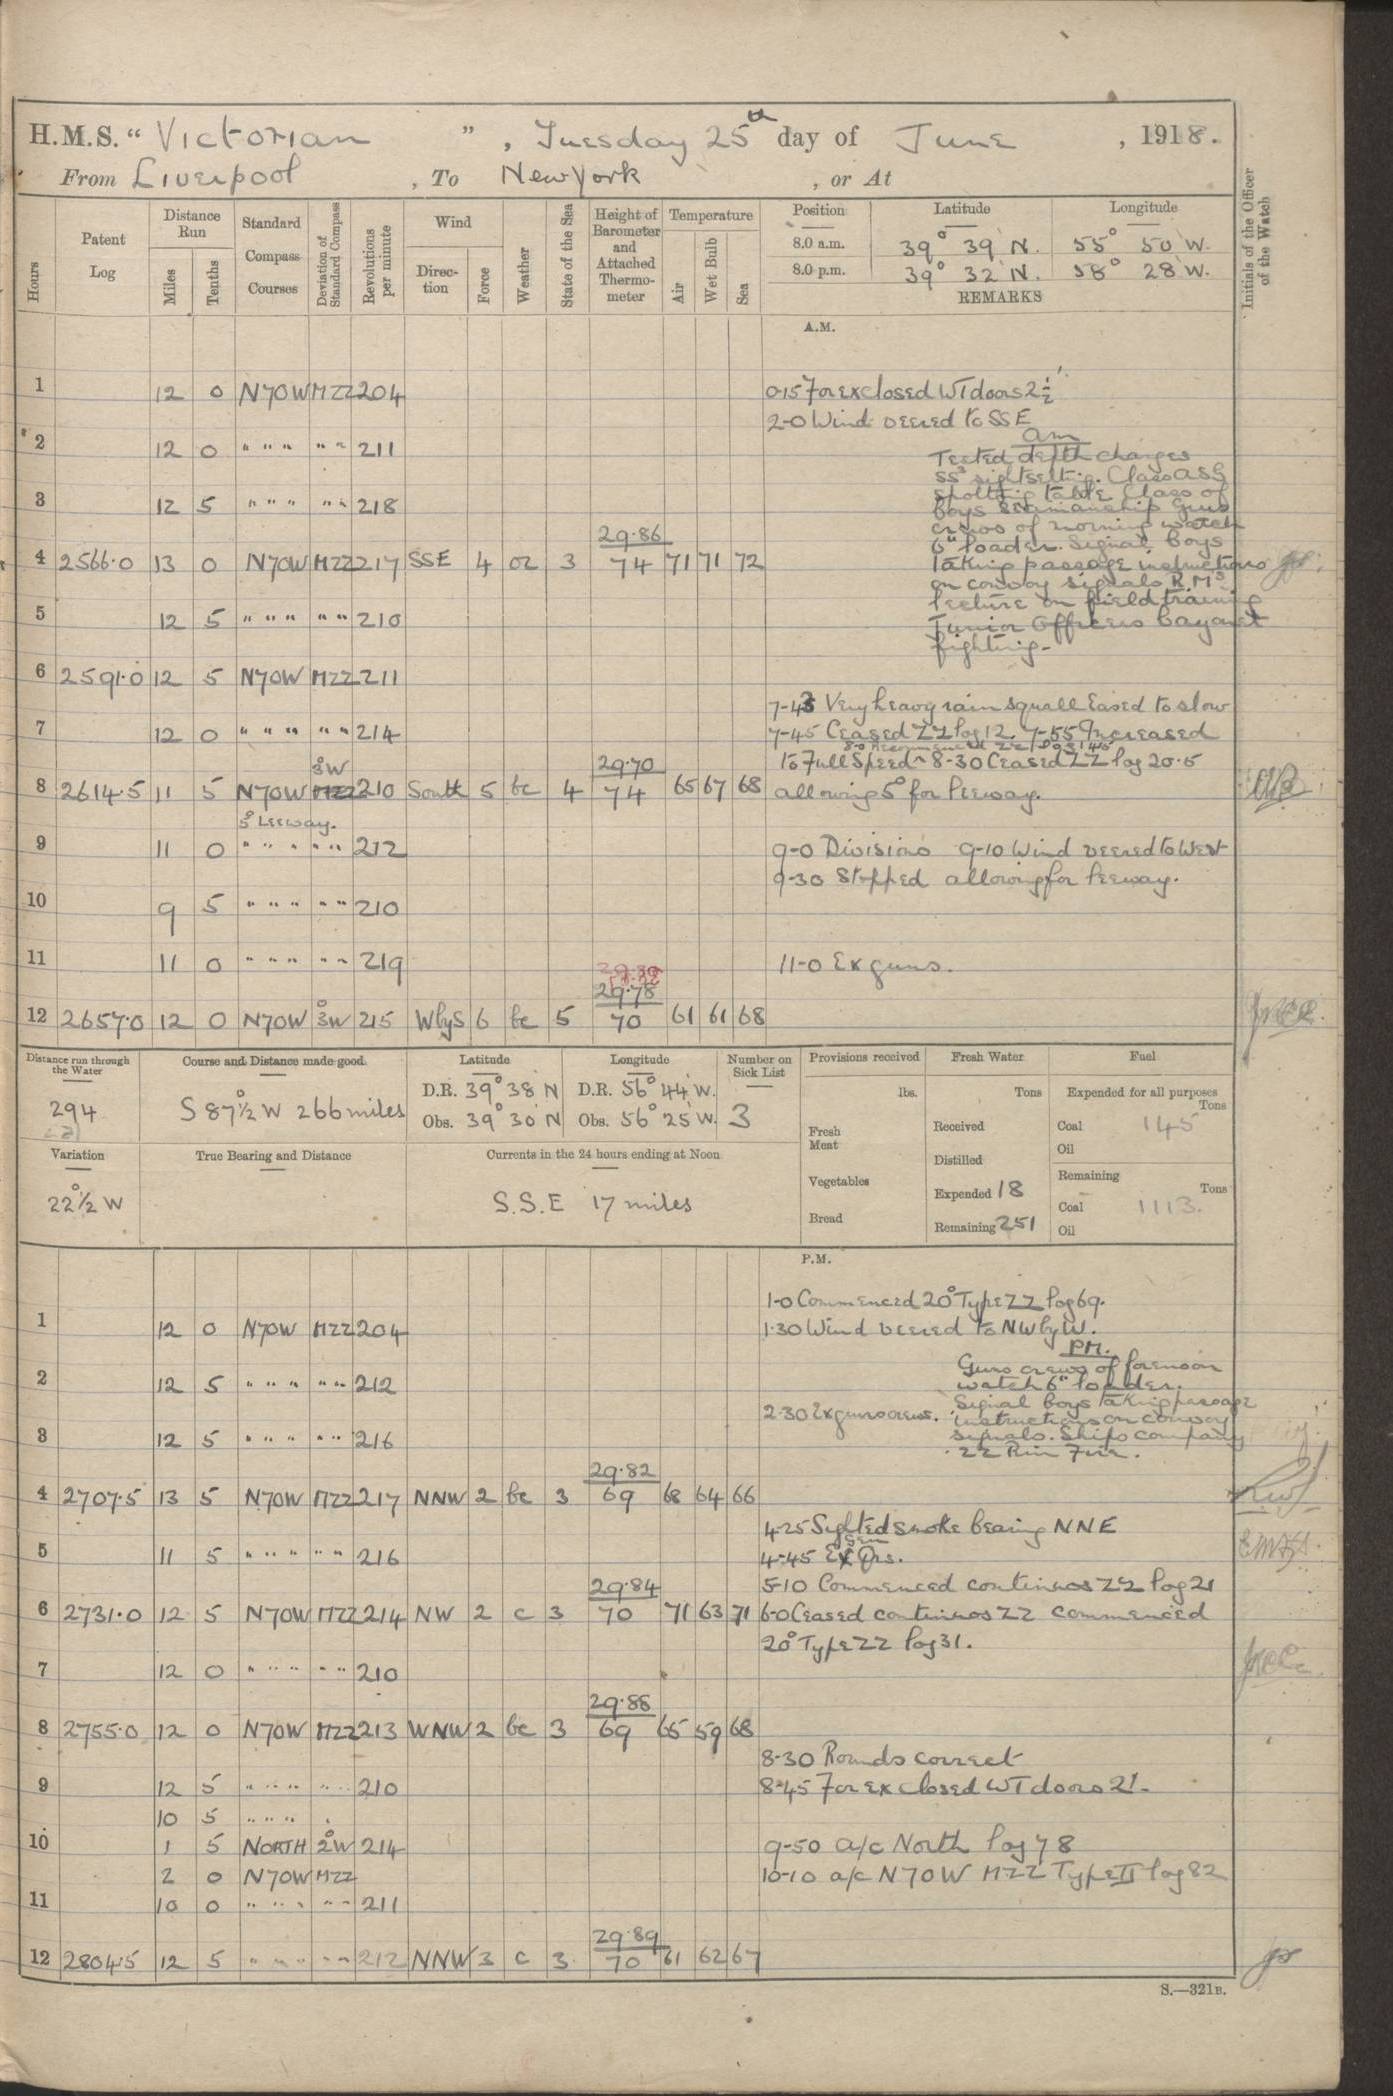 H.M.S. " Victorian ", Tuesday 25th day of June, 1918.
From Liverpool, To New York, or At
Hours
Patent Log
Distance Run
Miles
Tenths
Standard Compass Courses
Deviation of Standard Compass
Revolutions per minute
Wind
Direction
Force
Weather
State of the Sea
Height of Barometer and Attached Thermometer
Temperature
Air
Wet Bulb
Sea
Position Latitude Longitude
8.0 a.m. 39° 39' N. 55° 50' W.
8.0 p.m. 39° 32' N. 58° 28' W.
REMARKS
Initials of the Officer of the Watch
A.M.
1 12 0 N70W MZZ 204 0-15 For ex closed WT doors 2½'
2-0 Wind veered to SSE
2 12 0 " " " " " " 211
am
Tested depth charges
SSs sightsetting. Class ASG
spotting table Class of
3 12 5 " " " " " 218
boys seamanship Guns
crews of morning watch
29.86
6" loader. Signal boys
4 2566.0 13 0 N70W MZZ 217 SSE 4 oz 3 74 71 71 72 taking passage instructions
on convoy signals R.M's
lecture on field training
5 12 5 " " " " " 210 Junior Officers bayonet
fighting-
6 2591.0 12 5 N70W MZZ 211
7-43 Very heavy rain squall Eased to slow
7 12 0 " " " " " " 214 7-45 Ceased ZZ log 12. 7-55 Increased
8-0 Recommenced ZZ log 14.5
3°W 29.70 to Full Speed ^ 8-30 Ceased ZZ log 20.5
8 2614.5 11 5 N70W MZZ 210 South 5 bc 4 74 65 67 68 allowing 5° for leeway.
5° Leeway.
9 11 0 " " " " " " 212 9-0 Divisions 9-10 Wind veered to West
9-30 Stopped allowing for leeway.
10 9 5 " " " " " 210
11 11 0 " " " " " 219 11-0 Ex guns.
29.78
12 2657.0 12 0 N70W 3°W 215 WbyS 6 bc 5 70 61 61 68
Distance run through the Water
294
Course and Distance made good
S 87½° W 266 miles
Latitude
D.R. 39° 38' N
Obs. 39° 30' N
Longitude
D.R. 56° 44' W.
Obs. 56° 25' W.
Number on Sick List
3
Provisions received
lbs.
Fresh Meat
Vegetables
Bread
Fresh Water
Tons
Received
Distilled
Expended 18
Remaining 251
Fuel
Expended for all purposes
Tons
Coal 145
Oil
Remaining
Tons
Coal 1113.
Oil
Variation
22½° W
True Bearing and Distance
Currents in the 24 hours ending at Noon
S.S.E 17 miles
P.M.
1-0 Commenced 20° Type ZZ log 69.
1 12 0 N70W MZZ 204 1.30 Wind veered to NWbyW.
PM.
Guns crews of forenoon
2 12 5 " " " " " " 212 watch 6" loader.
Signal boys taking passage
2.30 Ex guns crews. instructions on convoy
3 12 5 " " " " " " 216 signals. Ships company
.22 Rim Fire.
29.82
4 2707.5 13 5 N70W MZZ 217 NNW 2 bc 3 69 68 64 66
4-25 Sighted smoke bearing NNE
5 11 5 " " " " " " 216 4-45 Ex Gen Qrs.
29.84 5-10 Commenced continuos ZZ log 21
6 2731.0 12 5 N70W MZZ 214 NW 2 c 3 70 71 63 71 6-0 Ceased continuos ZZ commenced
20° Type ZZ log 31.
7 12 0 " " " " " 210
29.88
8 2755.0 12 0 N70W MZZ 213 WNW 2 bc 3 69 65 59 68
8-30 Rounds correct
9 12 5 " " " " " " 210 8-45 For ex closed WT doors 2'-
10 5 " " " "
10 1 5 NORTH 2°W 214 9-50 a/c North log 78
2 0 N70W MZZ 10-10 a/c N70W MZZ Type II log 82
11 10 0 " " " " " " 211
29.89
12 2804.5 12 5 " " " " " 212 NNW 3 c 3 70 61 62 67
S.—321B.